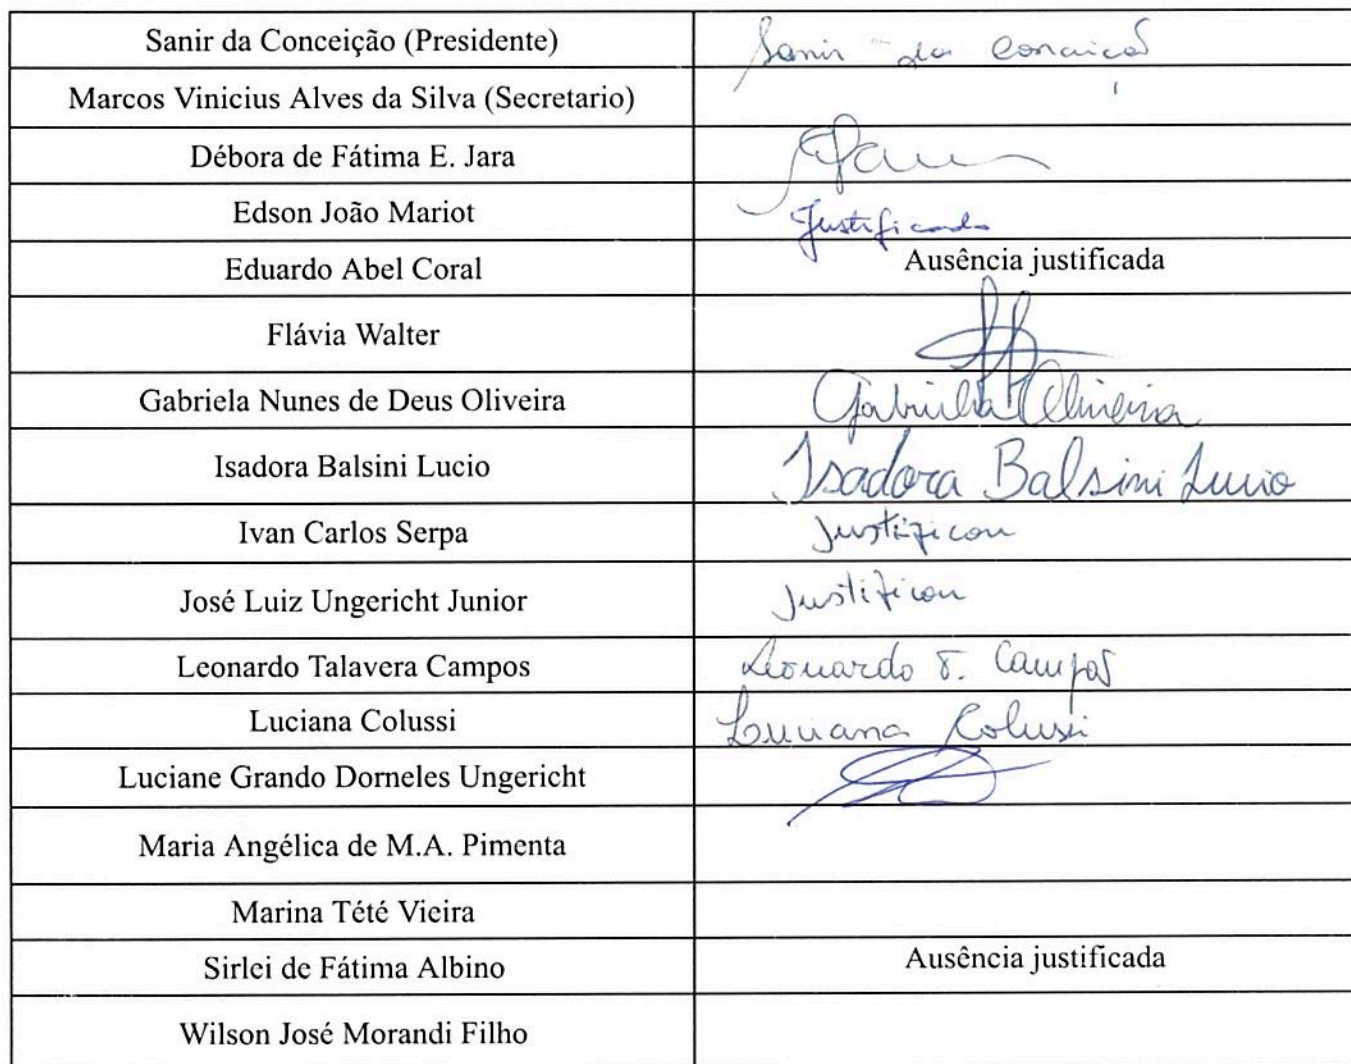 Sanir da Conceição (Presidente) Sanir da Conceição
Marcos Vinicius Alves da Silva (Secretario)
Débora de Fátima E. Jara
Edson João Mariot Justificado
Eduardo Abel Coral Ausência justificada
Flávia Walter
Gabriela Nunes de Deus Oliveira Gabriela Oliveira
Isadora Balsini Lucio Isadora Balsini Lucio
Ivan Carlos Serpa Justificou
José Luiz Ungericht Junior Justificou
Leonardo Talavera Campos Leonardo T. Campos
Luciana Colussi Luciana Colussi
Luciane Grando Dorneles Ungericht
Maria Angélica de M.A. Pimenta
Marina Tété Vieira
Sirlei de Fátima Albino Ausência justificada
Wilson José Morandi Filho